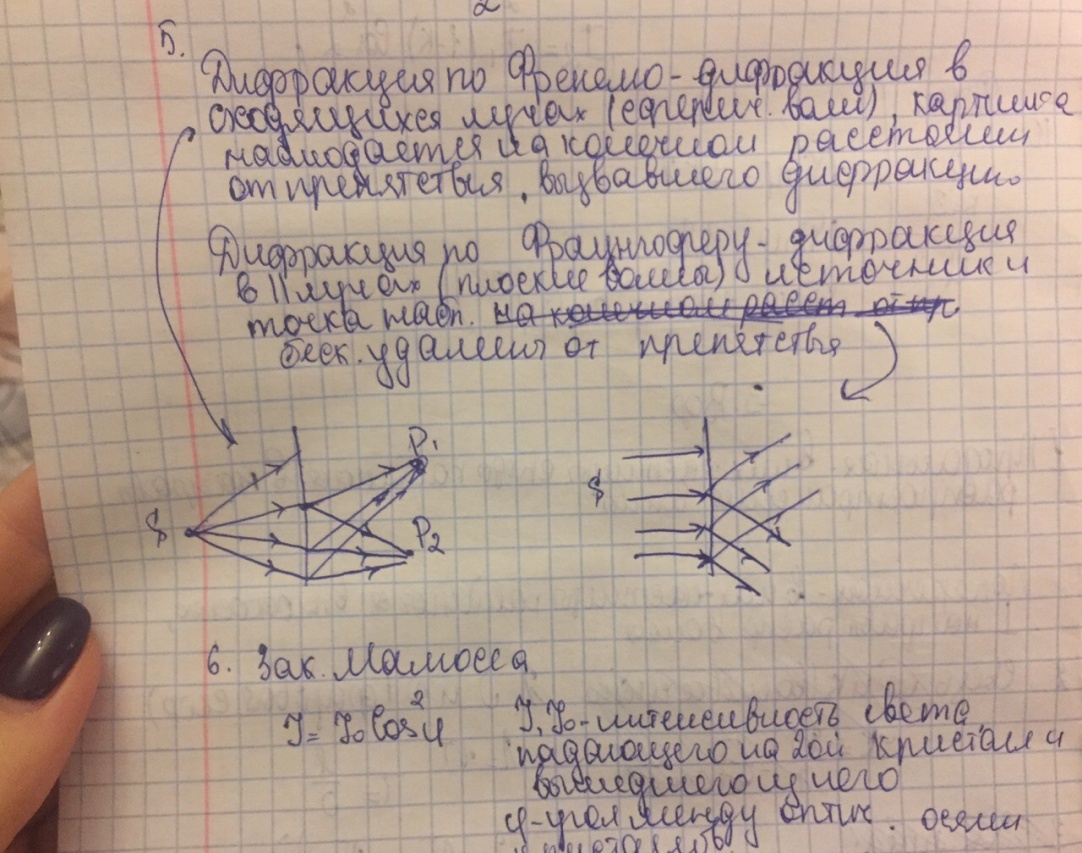 2
5.
Дифракция по Френелю - дифракция в
сходящихся лучах (сферич. волн), картинка
наблюдается на конечном расстоянии
от препятствия, вызвавшего дифракцию.
Дифракция по Фраунгоферу - дифракция
в || лучах (плоские волны) источник и
точка набл. на конечном расст от пр.
беск. удалены от препятствия
P₁
S
P₂
S
6. Зак. Малюсса
I = I₀ cos²φ
I, I₀ - интенсивность света,
падающего на 2ой кристалл и
вышедшего из него
φ - угол между оптич. осями
кристаллов